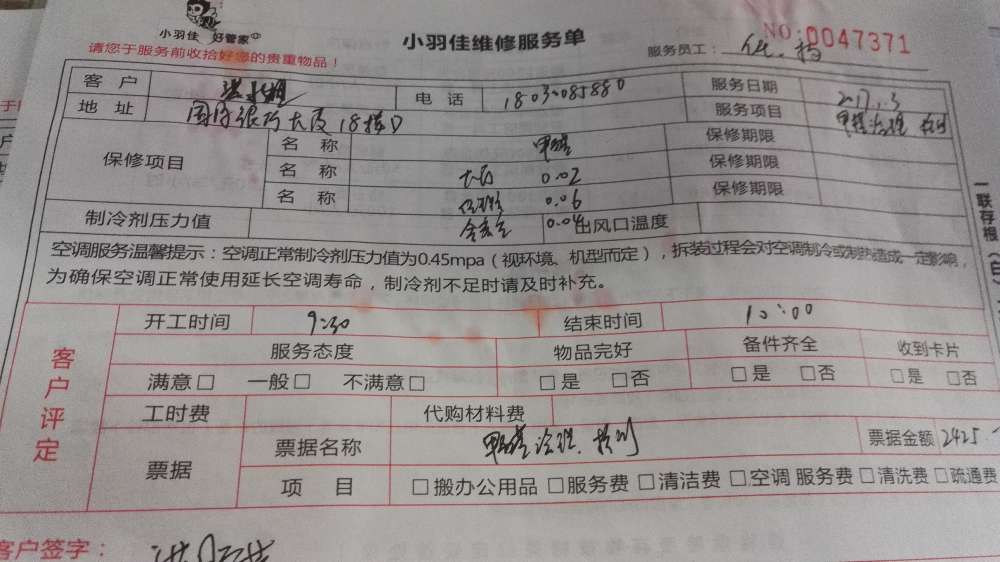 小羽佳 好管家
小羽佳维修服务单
NO:0047371
请您于服务前收拾好您的贵重物品!
服务员工:
客户
电话 18030085880
服务日期 2017.1.3
地址 国际银行大厦18楼D
服务项目 甲醛治理 检测
保修项目
名称 甲醛
保修期限
名称 大厅 0.02
保修期限
名称 0.06
保修期限
制冷剂压力值 会议室 0.04
出风口温度
空调服务温馨提示:空调正常制冷剂压力值为0.45mpa(视环境、机型而定),拆装过程会对空调制冷或制热造成一定影响,
为确保空调正常使用延长空调寿命,制冷剂不足时请及时补充。
一联存根(白)
客户评定
开工时间 9:30 结束时间 10:00
服务态度 物品完好 备件齐全 收到卡片
满意□ 一般□ 不满意□ □是 □否 □是 □否 □是 □否
工时费 代购材料费
票据
票据名称 甲醛治理、检测 票据金额 2425
项目 □搬办公用品 □服务费 □清洁费 □空调服务费 □清洗费 □疏通费
客户签字: